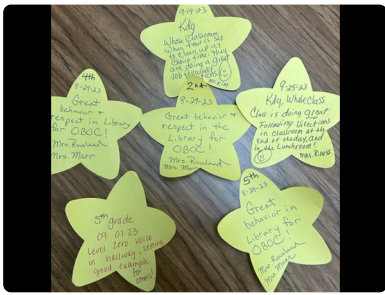 9-19-23
Kdg
Whole Classroom
When timer is set
to clean up at
Choice time, they
are doing a great
Job following
4th
8-29-23
Great
behavior &
respect in Library
for OBOC!
Mrs. Ruuland
Mrs. Marr
2nd
8-29-23
Great behavior &
respect in the
Library for
OBOC!
Mrs. Ruuland
Mrs. Marr
9-25-23
Kdg, Whole Class
Class is doing great
Following Directions
in classroom at the
end of the day, and
in the Lunchroom!
Mrs. Riness
5th grade
09.01.23
Level Zero voice
in hallway, setting
good example
for others!
5th
8-29-23
Great
behavior in
Library for
OBOC!
Mrs. Ruuland
Mrs. Marr